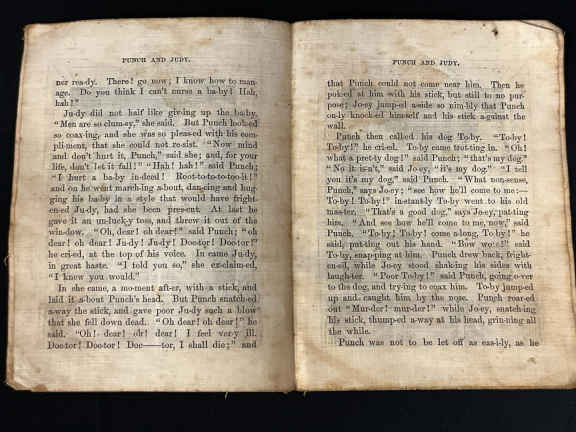 PUNCH AND JUDY.
ner rea-dy. There! go now; I know how to man-
age. Do you think I can't nurse a ba-by! Hah,
hah!"
Ju-dy did not half like giv-ing up the ba-by.
"Men are so clum-sy," she said. But Punch look-ed
so coax-ing, and she was so pleas-ed with his com-
pli-ment, that she could not re-sist. "Now mind
and don't hurt it, Punch," said she; and, for your
life, don't let it fall!" "Hah! hah!" said Punch;
"I hurt a ba-by in-deed! Root-to-to-to-too-it!"
and on he went march-ing a-bout, dan-cing and hug-
ging his ba-by in a style that would have fright-
en-ed Ju-dy, had she been pres-ent. At last he
gave it an un-luck-y toss, and threw it out of the
win-dow. "Oh, dear! oh dear!" said Punch; "oh
dear! oh dear! Ju-dy! Ju-dy! Doc-tor! Doc-tor!"
he cri-ed, at the top of his voice. In came Ju-dy,
in great haste. "I told you so," she ex-claim-ed,
"I knew you would."
In she came, a mo-ment aft-er, with a stick, and
laid it a-bout Punch's head. But Punch snatch-ed
a-way the stick, and gave poor Ju-dy such a blow
that she fell down dead. "Oh dear! oh dear!" he
said. "Oh! dear! oh! dear! I feel ver-y ill.
Doc-tor! Doc-tor! Doc——tor, I shall die;" and
PUNCH AND JUDY.
that Punch could not come near him. Then he
pok-ed at him with his stick, but still to no pur-
pose; Jo-ey jump-ed aside so nim-bly that Punch
on-ly knock-ed him-self and his stick a-gainst the
wall.
Punch then call-ed his dog To-by. "To-by!
To-by!" he cri-ed. To-by came trot-ting in. "Oh!
what a pret-ty dog!" said Punch; "that's my dog."
"No it is-n't," said Jo-ey, "it's my dog." "I tell
you it's my dog," said Punch. "What non-sense,
Punch," says Jo-ey; "see how he'll come to me:—
To-by! To-by!" in-stant-ly To-by went to his old
mas-ter. "That's a good dog," says Jo-ey, pat-ting
him. "And see how he'll come to me, now," said
Punch. "To-by! To-by! come a-long, To-by!" he
said, put-ting out his hand. "Bow wow!" said
To-by, snap-ping at him. Punch drew back, fright-
en-ed, while Jo-ey stood shak-ing his sides with
laugh-ter. "Poor To-by!" said Punch, going over
to the dog, and try-ing to coax him. To-by jump-ed
up and caught him by the nose. Punch roar-ed
out "Mur-der! mur-der!" while Jo-ey, snatch-ing
his stick, thump-ed a-way at his head, grin-ning all
the while.
Punch was not to be let off so eas-i-ly, as he